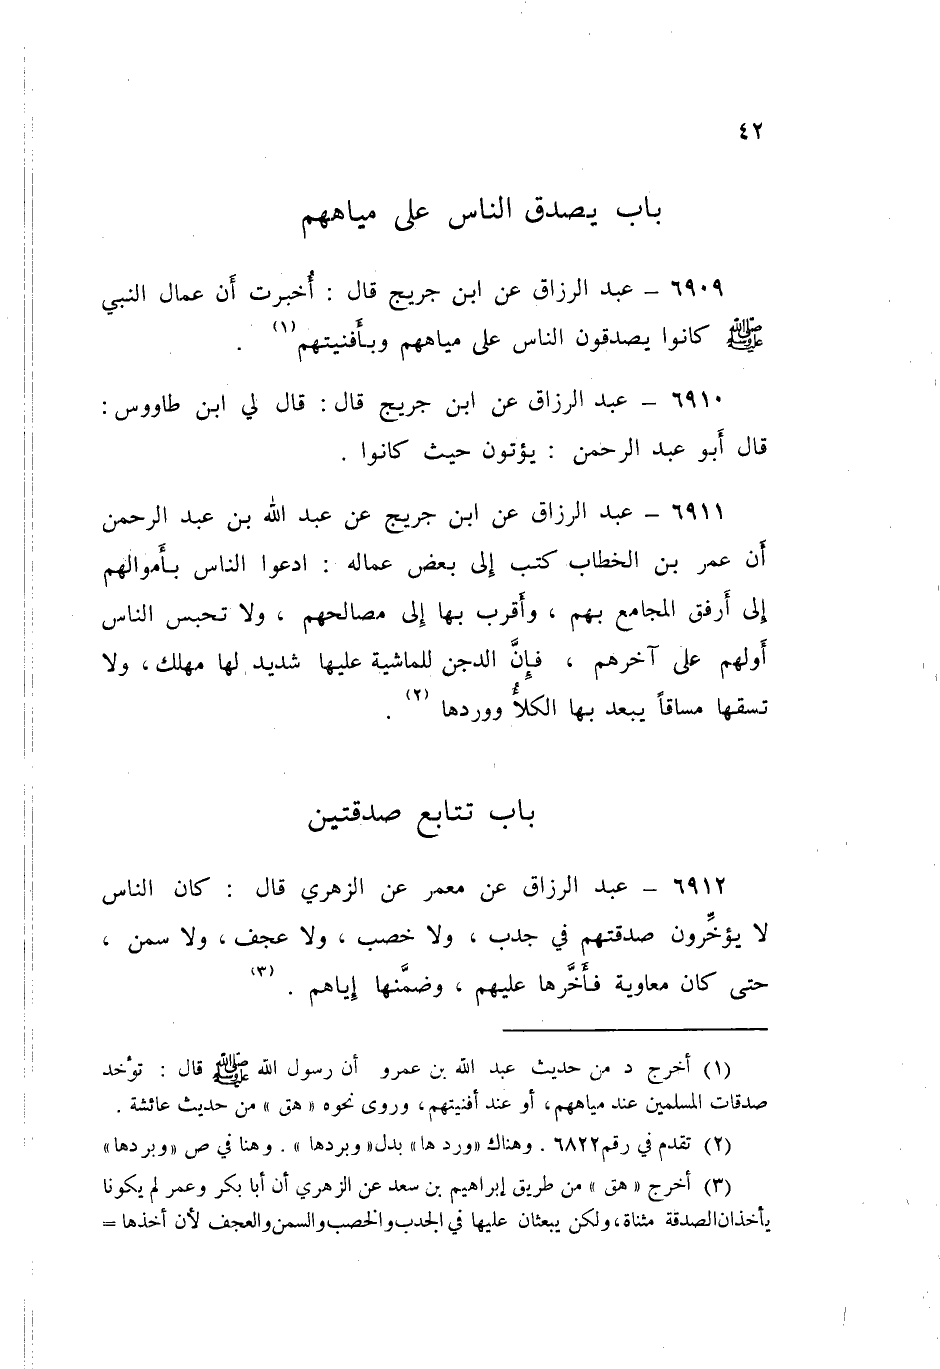 ٤٢
باب يصدق الناس على مياههم
٦٩٠٩ – عبد الرزاق عن ابن جريج قال : أُخبرت أَن عمال النبي
ﷺ كانوا يصدقون الناس على مياههم وبأَفنيتهم (١) .
٦٩١٠ – عبد الرزاق عن ابن جريج قال : قال لي ابن طاووس :
قال أَبو عبد الرحمن : يؤتون حيث كانوا .
٦٩١١ – عبد الرزاق عن ابن جريج عن عبد الله بن عبد الرحمن
أَن عمر بن الخطاب كتب إلى بعض عماله : ادعوا الناس بأَموالهم
إلى أَرفق المجامع بهم ، وأَقرب بها إلى مصالحهم ، ولا تحبس الناس
أَولهم على آخرهم ، فإِنَّ الدجن للماشية عليها شديد لها مهلك ، ولا
تسقها مساقاً يبعد بها الكلأُ ووردها (٢) .
باب تتابع صدقتين
٦٩١٢ – عبد الرزاق عن معمر عن الزهري قال : كان الناس
لا يؤخِّرون صدقتهم في جدب ، ولا خصب ، ولا عجف ، ولا سمن ،
حتى كان معاوية فأَخَّرها عليهم ، وضمَّنها إياهم . (٣)
(١) أخرج د من حديث عبد الله بن عمرو أن رسول الله ﷺ قال : تؤخد
صدقات المسلمين عند مياههم، أو عند أفنيتهم، وروى نحوه « هق » من حديث عائشة .
(٢) تقدم في رقم ٦٨٢٢ . وهناك «ورد ها» بدل «وبردها » . وهنا في ص «وبردها»
(٣) أخرج « هق » من طريق إبراهيم بن سعد عن الزهري أن أبا بكر وعمر لم يكونا
يأخذان الصدقة مثناة، ولكن يبعثان عليها في الجدب والخصب والسمن والعجف لأن أخذها =